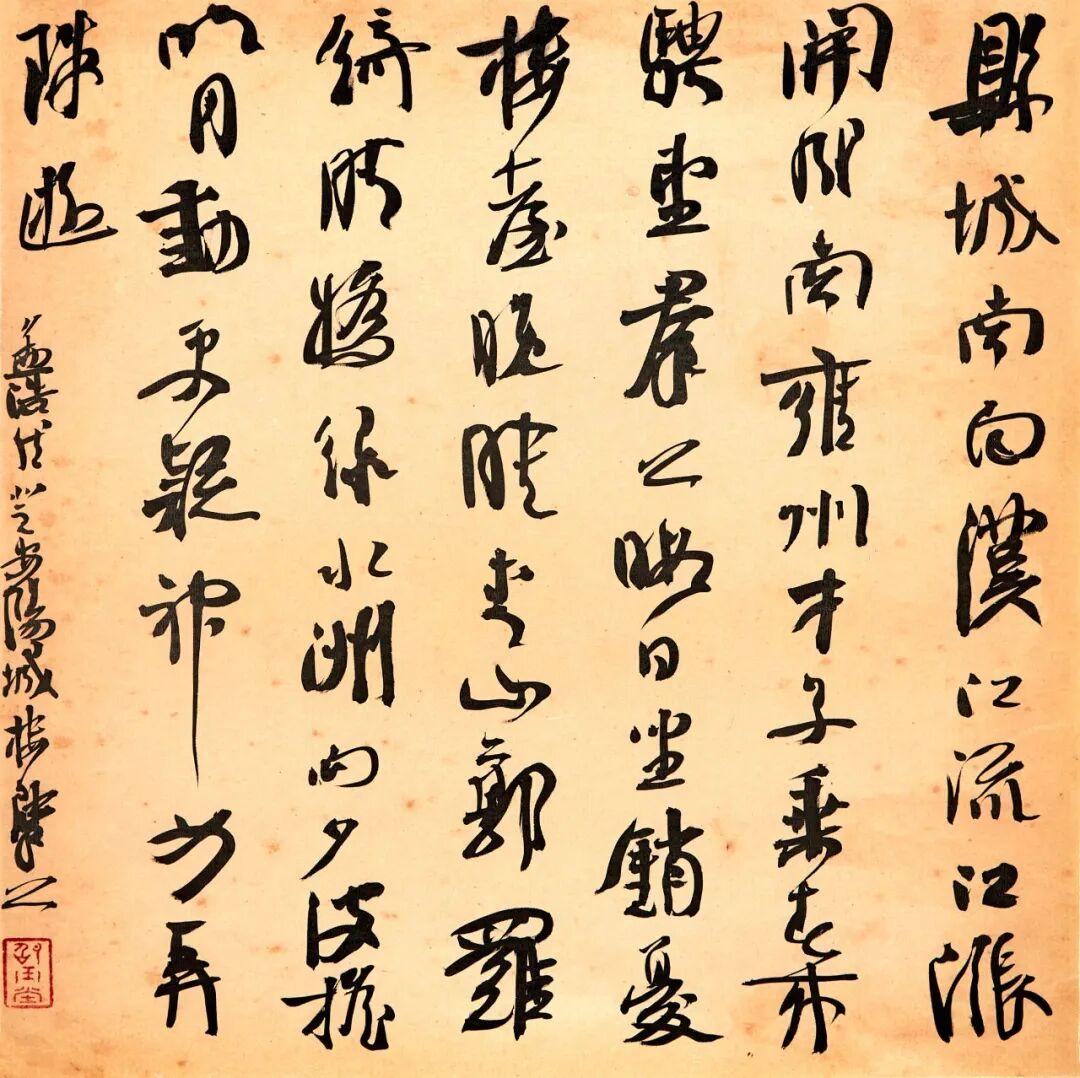 縣城南面漢江流江漲
開成南雍州才子乘春來
騁望羣公暇日坐銷憂
樓臺晚映青山郭羅
綺晴嬌綠水洲向夕波搖
明月動更疑神女弄
珠遊
孟浩然登安陽城樓